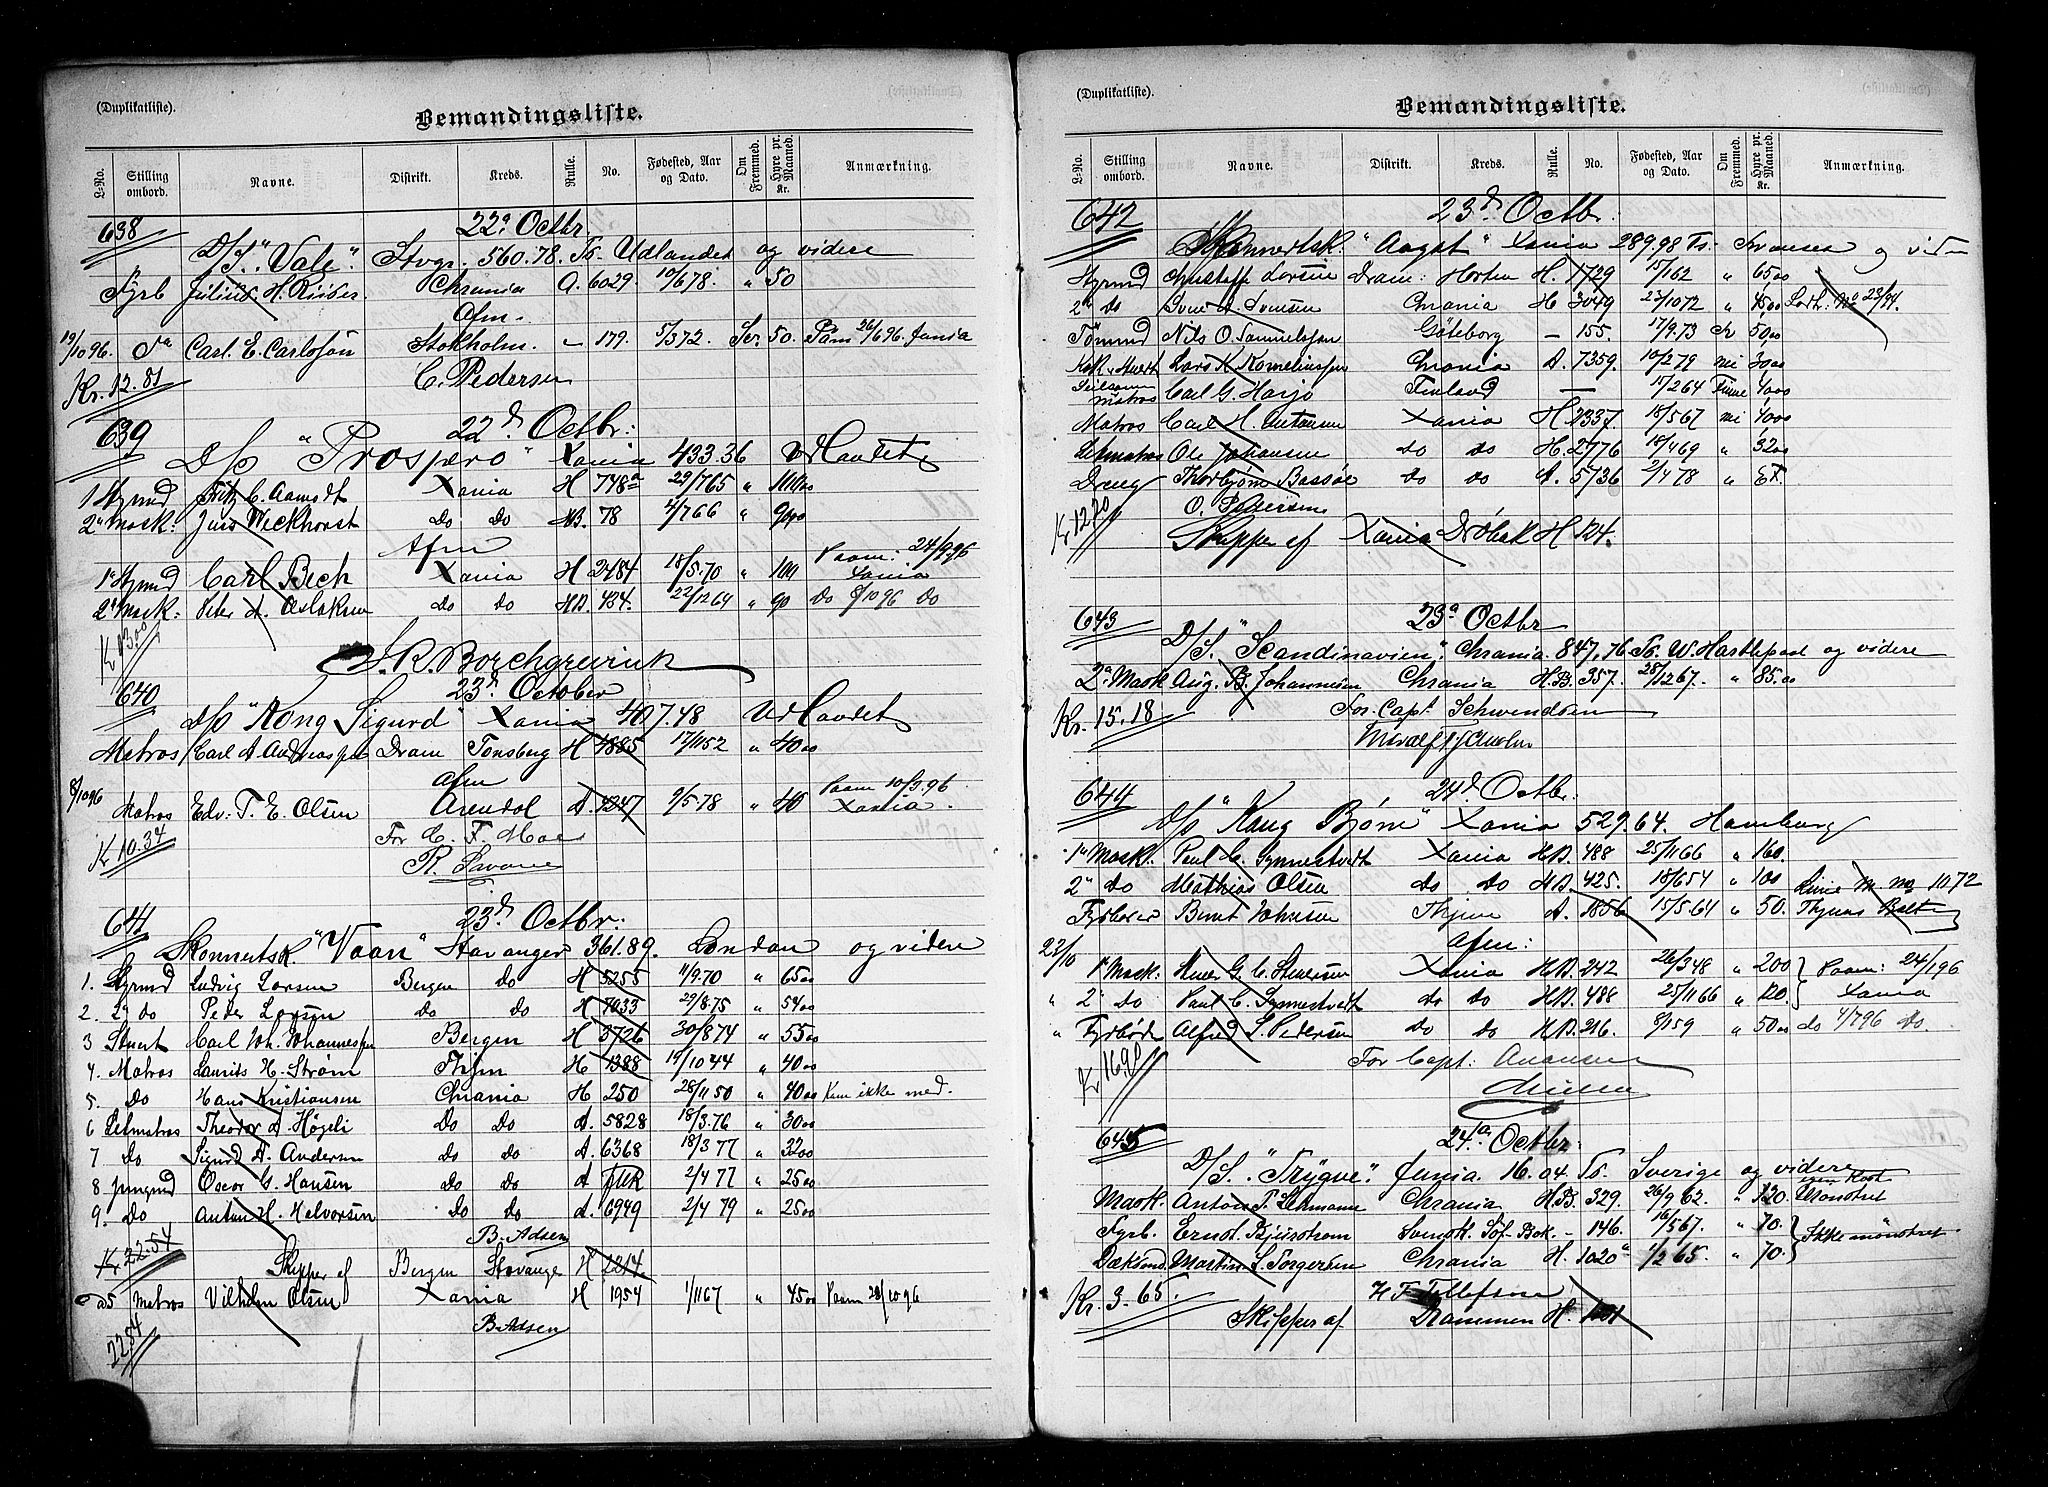 (Duplikatliste).
Bemandingsliste.
L-No. Stilling ombord. Navne. Distrikt. Kreds. Rulle. No. Fødested, Aar og Dato. Om Fremmed. Hyre pr. Maaned. Kr. Anmærkning.
638 22a Octbr.
D/S. "Vale". Stvgr. 560.78. Ts. Udlandet og videre
Fyrb Julius H. Riiser. Chrania A. 6029. 10/6 78. " 50
Afm.
19/10 96. Do Carl. E. Carlsson Stokholm. - 179. 5/3 72. Sv. 50. Paam 26/6 96. Xania
Kr. 12.81 C. Pedersen
639 22d Octbr:
D/S "Prospero" Xania 433.36 Udlandet
1 Styrmd Fritz C. Aamodt Xania H 748a 29/7 65 " 100
2" Mask: Jens Weckhorst Do Do HB. 78 4/7 66 " 90
Afm
1" Styrmd Carl Bech Xania H 2484 18/5.70 " 100 Paam: 24/9.96 Xania
2" Mask: Peter A. Aslaksen do do HB. 484. 22/12 64 " 90 Do 8/10 96 Do
Kr 13.00
S. R. Borchgrevink
640 23d October
D/S "Kong Sigurd" Xania 407.48 Udlandet
Matros Carl A Andreassen Dram Tønsberg H 4885 17/11 52 " 40 00
Afm
8/10 96 Matros Edv. T. E. Olsen Arendal A. 4247 9/5.78 " 40 Paam 10/3.96 Xania.
Kr 10.34 For C. F. Moe
641 23d Octbr:
Skonnertsk. "Vaan" Stavanger 361.89. London og videre
1. Styrmd Ludvig Larsen Bergen do H 5255 11/9.70 " 65 00
2. 2" do Peder Larsen do do H 7033 29/8.75 " 54 00
3 Stuert Carl Joh. Johannessen Bergen H 3726 30/8 74 " 55 00
4. Matros Laurits H. Strøm Thjm H 1388 19/10 44 " 40 00
5. Do Hans Kristiansen Chrania H 250 28/11 50 " 40 00 Kom ikke med.
6 Letmatros Theodor A Høgeli Do Do A. 5828 18/3.76 " 30 00
7 Do Sigurd A. Andersen do do A. 6368 18/3 77 " 32 00
8 Jungmd Oscar G. Hansen Do Do A 2/4 77 " 25 00
9. Do Anton H. Halvorsen Do do A. 6949 2/4 79 " 25 00
Kr 22.54 B. Adsen
Skipper af Bergen Stavanger H 1214
5 Matros Vilhelm Olsen Xania H 1954 1/11 67 " 45 00 Paam 20/10 96
22.54 B. Adsen
(Duplikatliste).
Bemandingsliste.
L-No. Stilling ombord. Navne. Distrikt. Kreds. Rulle. No. Fødested, Aar og Dato. Om Fremmed. Hyre pr. Maaned. Kr. Anmærkning.
642 23d Octbr.
Skonnertsk. "Aagot" Xania 289.98 Ts. Svansea og videre
Styrmd Larsen Dram: Horten H. 1729 15/1 62 " 65 00
2" do Svend A. Svensen Chrania H 3049 23/10 72 " 45 00
Tømmd Nils O. Samuelsson Göteborg - 155. 17/9.73 Sv 50,00
Kok & Stuert Lars K. Korneliussen Chrania A. 7359. 10/2 79 nei 30 00
Seilsømm. matros Carl G. Harjo Finland — 17/2 64 Finne 40 00
Matros Carl H. Antonsen Xania H 2337. 18/5 67 nei 40 00
Letmatros Ole Johansen do do H. 2776 18/4 69 " 32 00
Dreng Thorbjørn Bassøe do do A. 5736 2/4 78 " 8 kr.
Kr 12.20 O. Pedersen
Skipper af Xania Drøbak H 124.
643 23a Octbr
D/S. "Scandinavien". Chrania. 847,76 Ts. W. Hartlepool og videre
2a Mask Aug. B. Johannesen Chrania H.B. 357. 28/12 67. " 85.00
Kr. 15.18 For Capt. Schwendsen
644 24d Octbr.
D/S "Kong Bjørn" Xania 529.64. Hamburg
1" Mask. Paul C. Synnestvedt Xania HB. 488 25/11 66 " 160.
2" do Mathias Olsen do do HB. 425. 18/6 54 " 100
Fyrbøder Bernt Johnsen Thjem A. 1856 15/5.64 " 50.
Afm:
23/10 1" Mask. G. C. Steversen Xania HB. 242 26/3 48 " 200 Paam: 24/1 96 Xania
" 2" do Paul C. Synnestvedt do do HB. 488 25/11 66 " 120
" Fyrbøder Alfred L. Pedersen do do HB. 216. 8/1 59 " 50 00 do 4/7 96 do
Kr 16.91 For Capt:
645 24a Octbr.
D/S. "Trygve". Xania. 16.04. Ts. Sverige og videre
Mask. Anton P. Lehmann Chrania H.B. 329. 26/9 62. " 120. egen Kost Mønstret
Fyrb. Ernst. Bjurstrøm Svensk Søf-Bok - 146. 16/5 67. " 70. Ikke mønstret
Dæksmd. Martin L. Torgersen Chrania H. 1020a 1/2 65. " 70.
Kr. 3.65. H F Tellefsen
Skipper af Drammen H.